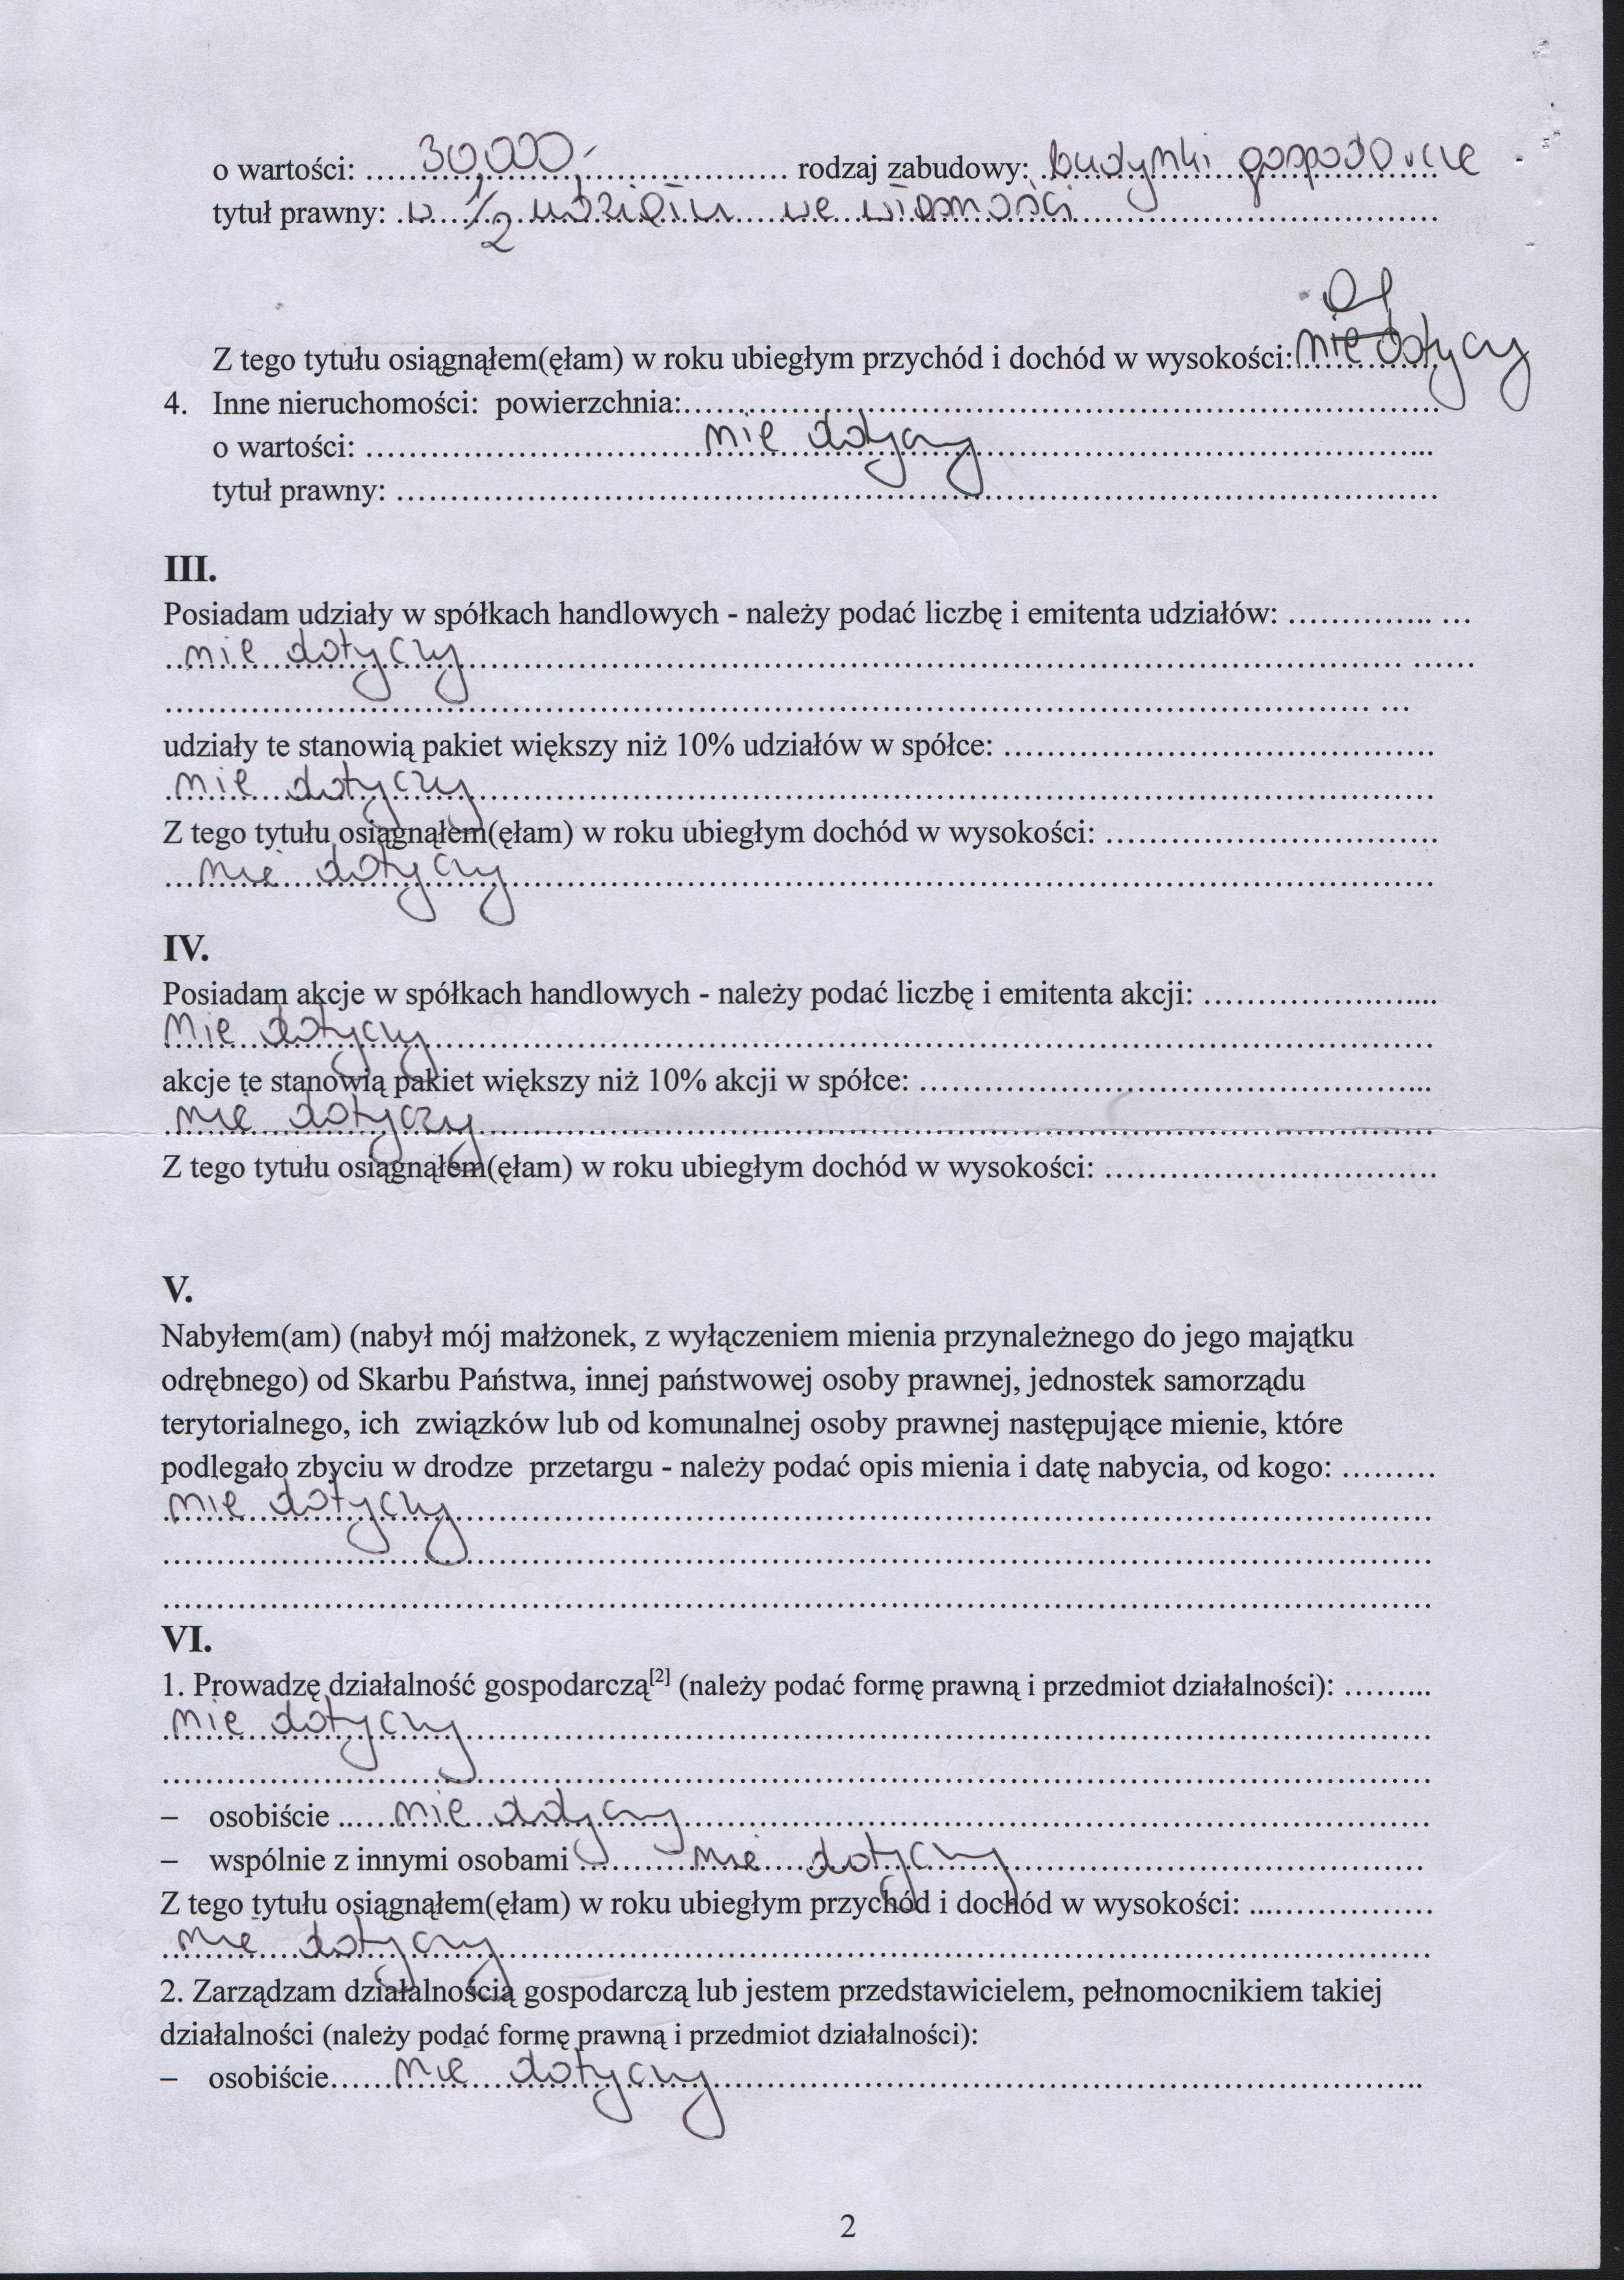 o wartości: ....30,000,-.... rodzaj zabudowy: budynki gospodarcze
tytuł prawny: w 1/2 udziału we własności
Z tego tytułu osiągnąłem(ęłam) w roku ubiegłym przychód i dochód w wysokości: nie dotyczy
4. Inne nieruchomości: powierzchnia:..........
o wartości: .......... nie dotyczy ..........
tytuł prawny: ..........
III.
Posiadam udziały w spółkach handlowych - należy podać liczbę i emitenta udziałów: ..........
nie dotyczy
udziały te stanowią pakiet większy niż 10% udziałów w spółce: ..........
nie dotyczy
Z tego tytułu osiągnąłem(ęłam) w roku ubiegłym dochód w wysokości: ..........
nie dotyczy
IV.
Posiadam akcje w spółkach handlowych - należy podać liczbę i emitenta akcji: ..........
nie dotyczy
akcje te stanowią pakiet większy niż 10% akcji w spółce: ..........
nie dotyczy
Z tego tytułu osiągnąłem(ęłam) w roku ubiegłym dochód w wysokości: ..........
V.
Nabyłem(am) (nabył mój małżonek, z wyłączeniem mienia przynależnego do jego majątku
odrębnego) od Skarbu Państwa, innej państwowej osoby prawnej, jednostek samorządu
terytorialnego, ich związków lub od komunalnej osoby prawnej następujące mienie, które
podlegało zbyciu w drodze przetargu - należy podać opis mienia i datę nabycia, od kogo: .........
nie dotyczy
VI.
1. Prowadzę działalność gospodarczą[2] (należy podać formę prawną i przedmiot działalności): .........
nie dotyczy
– osobiście ..... nie dotyczy ..........
– wspólnie z innymi osobami ..... nie dotyczy ..........
Z tego tytułu osiągnąłem(ęłam) w roku ubiegłym przychód i dochód w wysokości: ..........
nie dotyczy
2. Zarządzam działalnością gospodarczą lub jestem przedstawicielem, pełnomocnikiem takiej
działalności (należy podać formę prawną i przedmiot działalności):
– osobiście..... nie dotyczy ..........
2